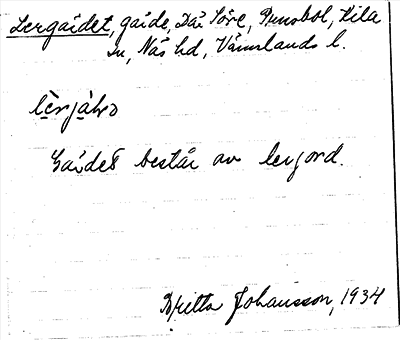 Lergärdet, gärde, Där Söre, Brunsbol, Kila
sn, Näs hd, Värmlands l.
Gärdet består av lerjord.
Britta Johansson, 1934